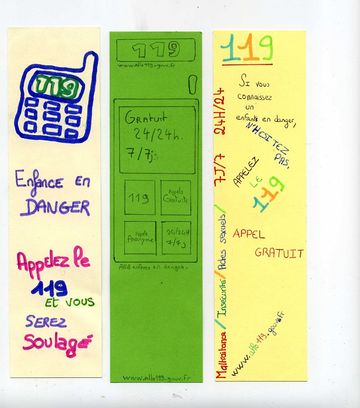 119
Enfance en
DANGER
Appelez le
119
ET vous
SEREZ
Soulagé
119
www.allo119.gouv.fr
Gratuit
24/24h.
7/7j.
119
Appels
Gratuits
Appels
Anonyme
24/24H
7/7j
Allô enfance en danger.
www.allo119.gouv.fr
119
Si vous
connaissez
un
enfant en danger,
N'HESITEZ
PAS,
APPELEZ
LE
119
APPEL
GRATUIT
www.allo119.gouv.fr
Maltraitance / Insécurité / Actes sexuels / 7J/7 24H/24